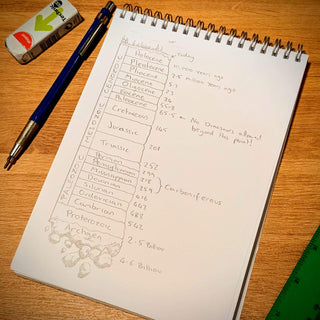 Today
Holocene
10,000 years ago
Pleistocene
2.5 million years ago
Pliocene
5.3
Miocene
Oligocene
34
Eocene
55.8
Paleocene
65.5 m No Dinosaurs allowed
beyond this point!
Cretaceous
145
Jurassic
201
Triassic
252
Permian
299
Pennsylvanian
318
Mississippian
359
Carboniferous
Devonian
416
Silurian
443
Ordovician
488
Cambrian
542
Proterozoic
2.5 Billion
Archaen
4.6 Billion
CENOZOIC
MESOZOIC